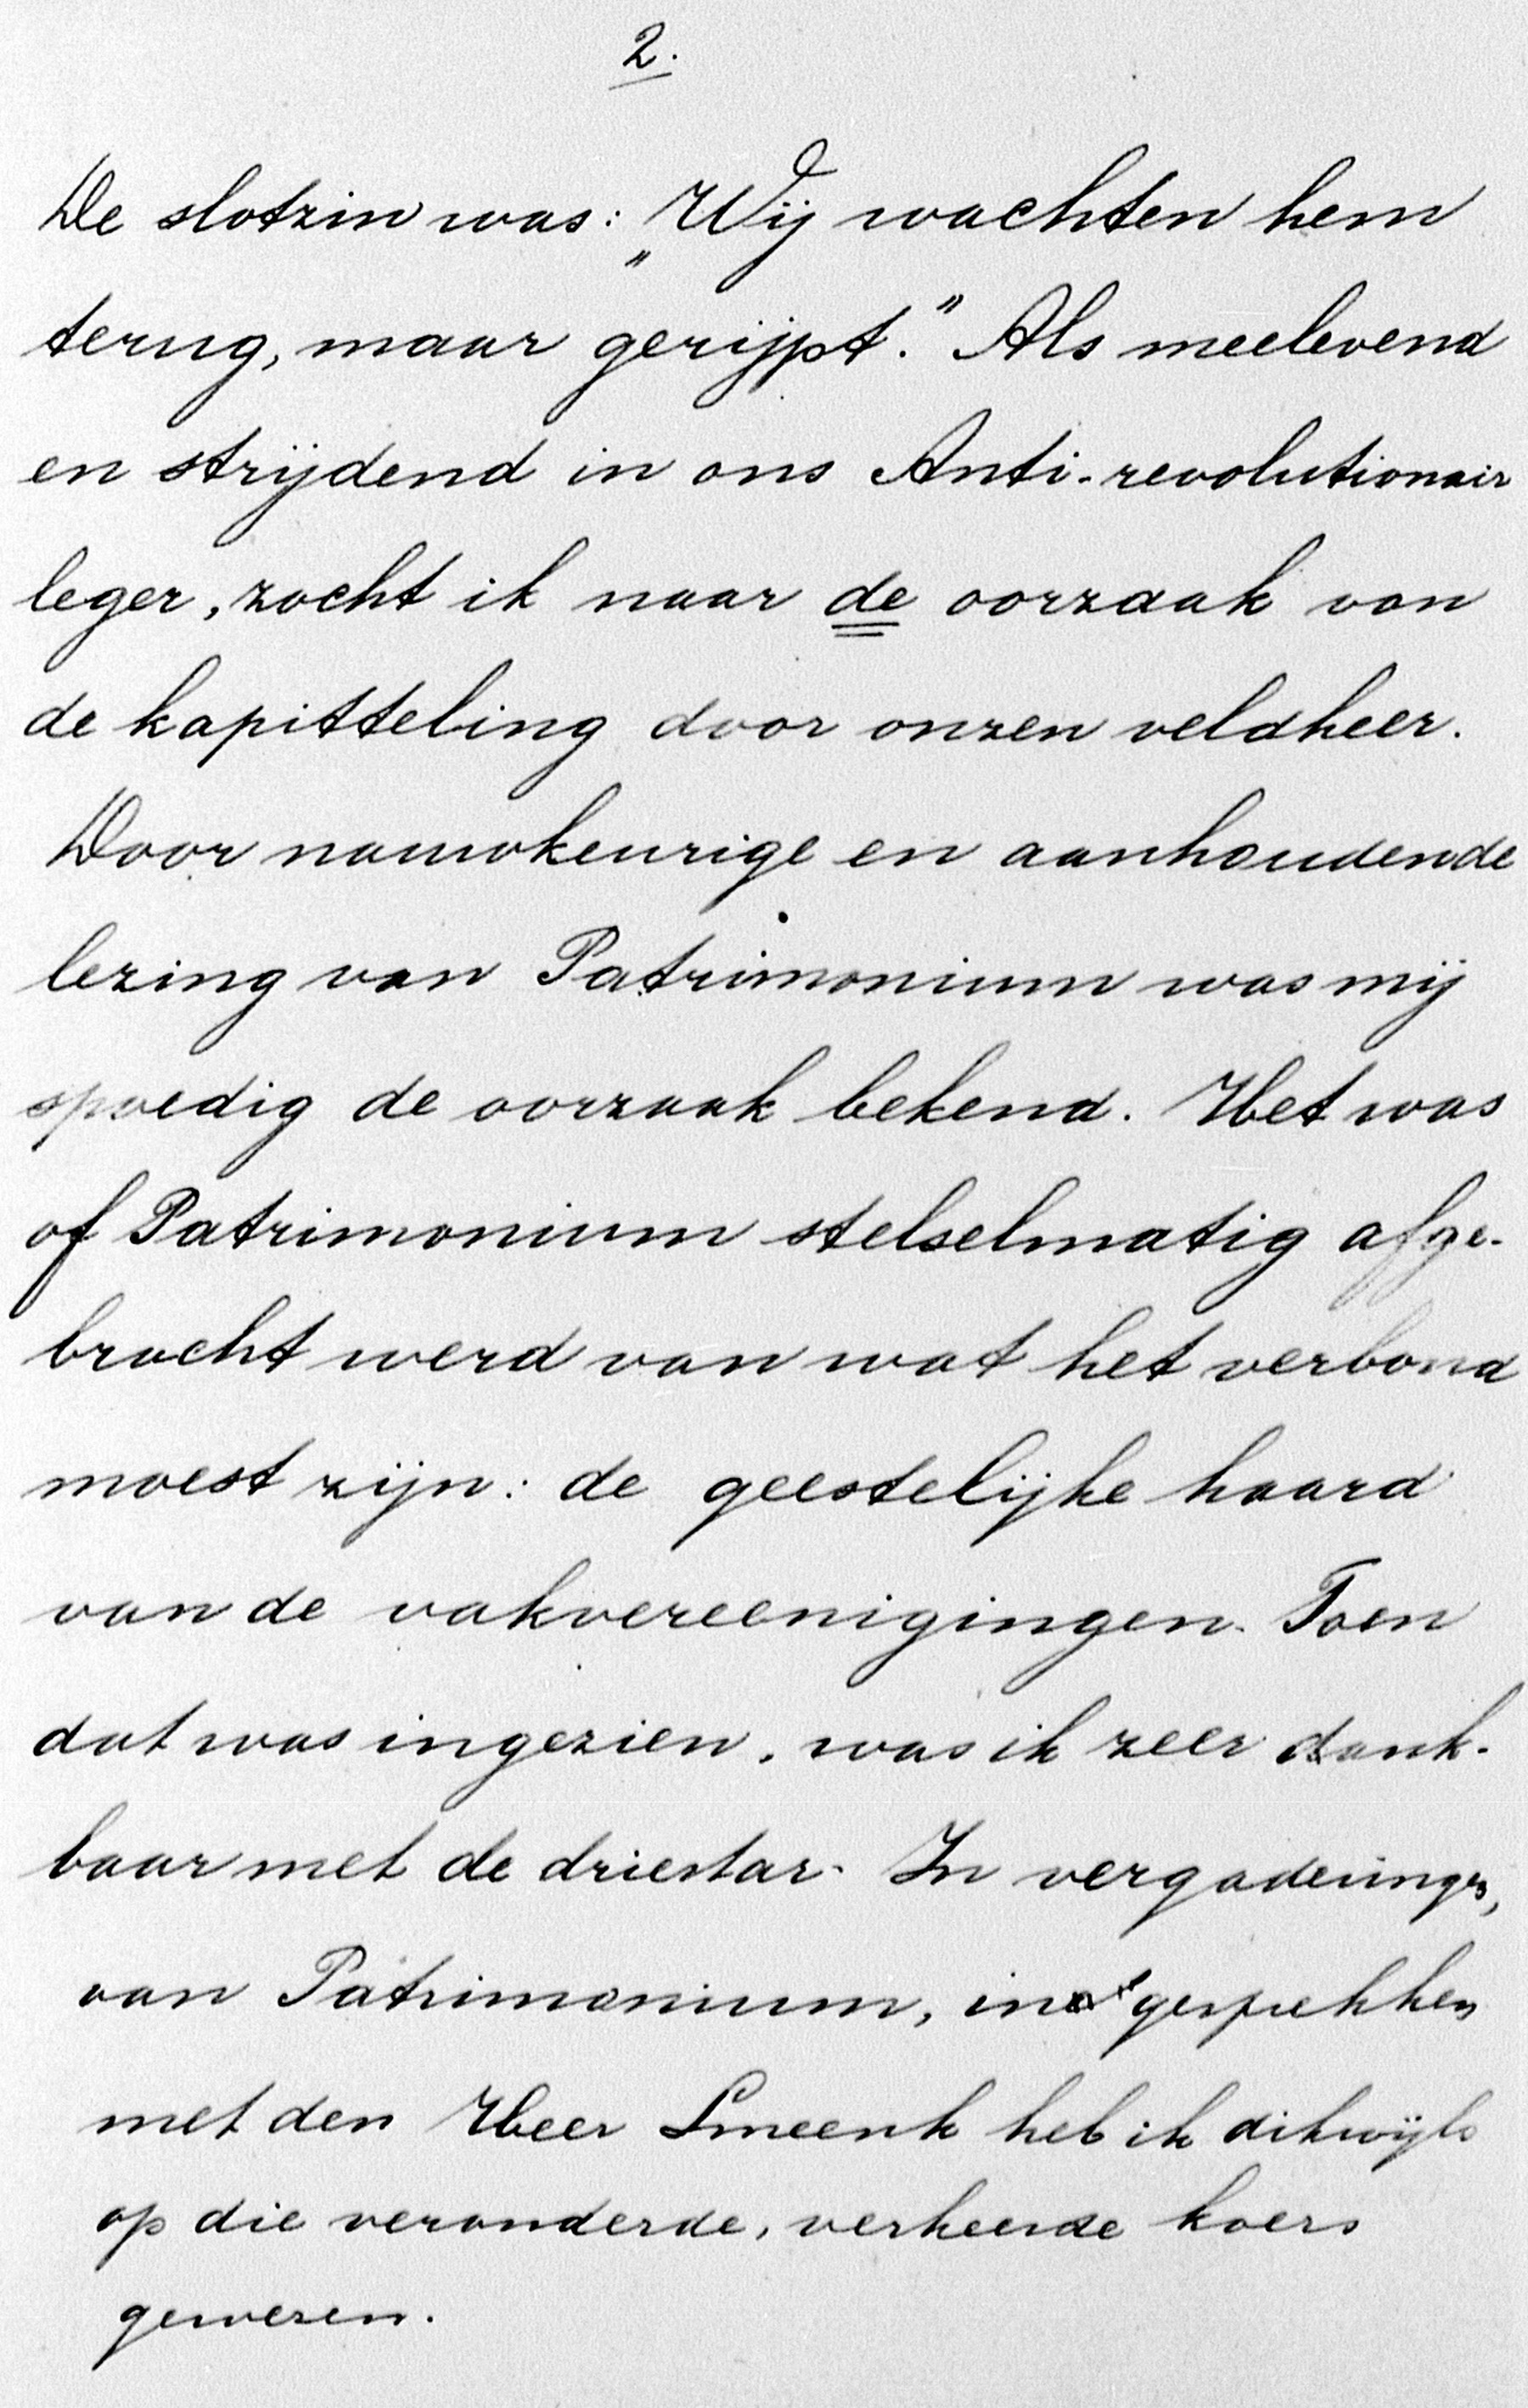 2.
De slotzin was: „Wij wachten hem
terug, maar gerijpt.” Als meelevend
en strijdend in ons Anti-revolutionair
leger, zocht ik naar de oorzaak van
de kapitteling door onzen veldheer.
Door nauwkeurige en aanhoudende
lezing van Patrimonium was mij
spoedig de oorzaak bekend. Het was
of Patrimonium stelselmatig afge-
bracht werd van wat het verbond
moest zijn: de geestelijke haard
van de vakvereenigingen. Toen
dat was ingezien, was ik zeer dank-
baar met de driestar. In vergaderingen,
van Patrimonium, in gesprekken
met den Heer Smeenk heb ik dikwijls
op die veranderde, verkeerde koers
gewezen.